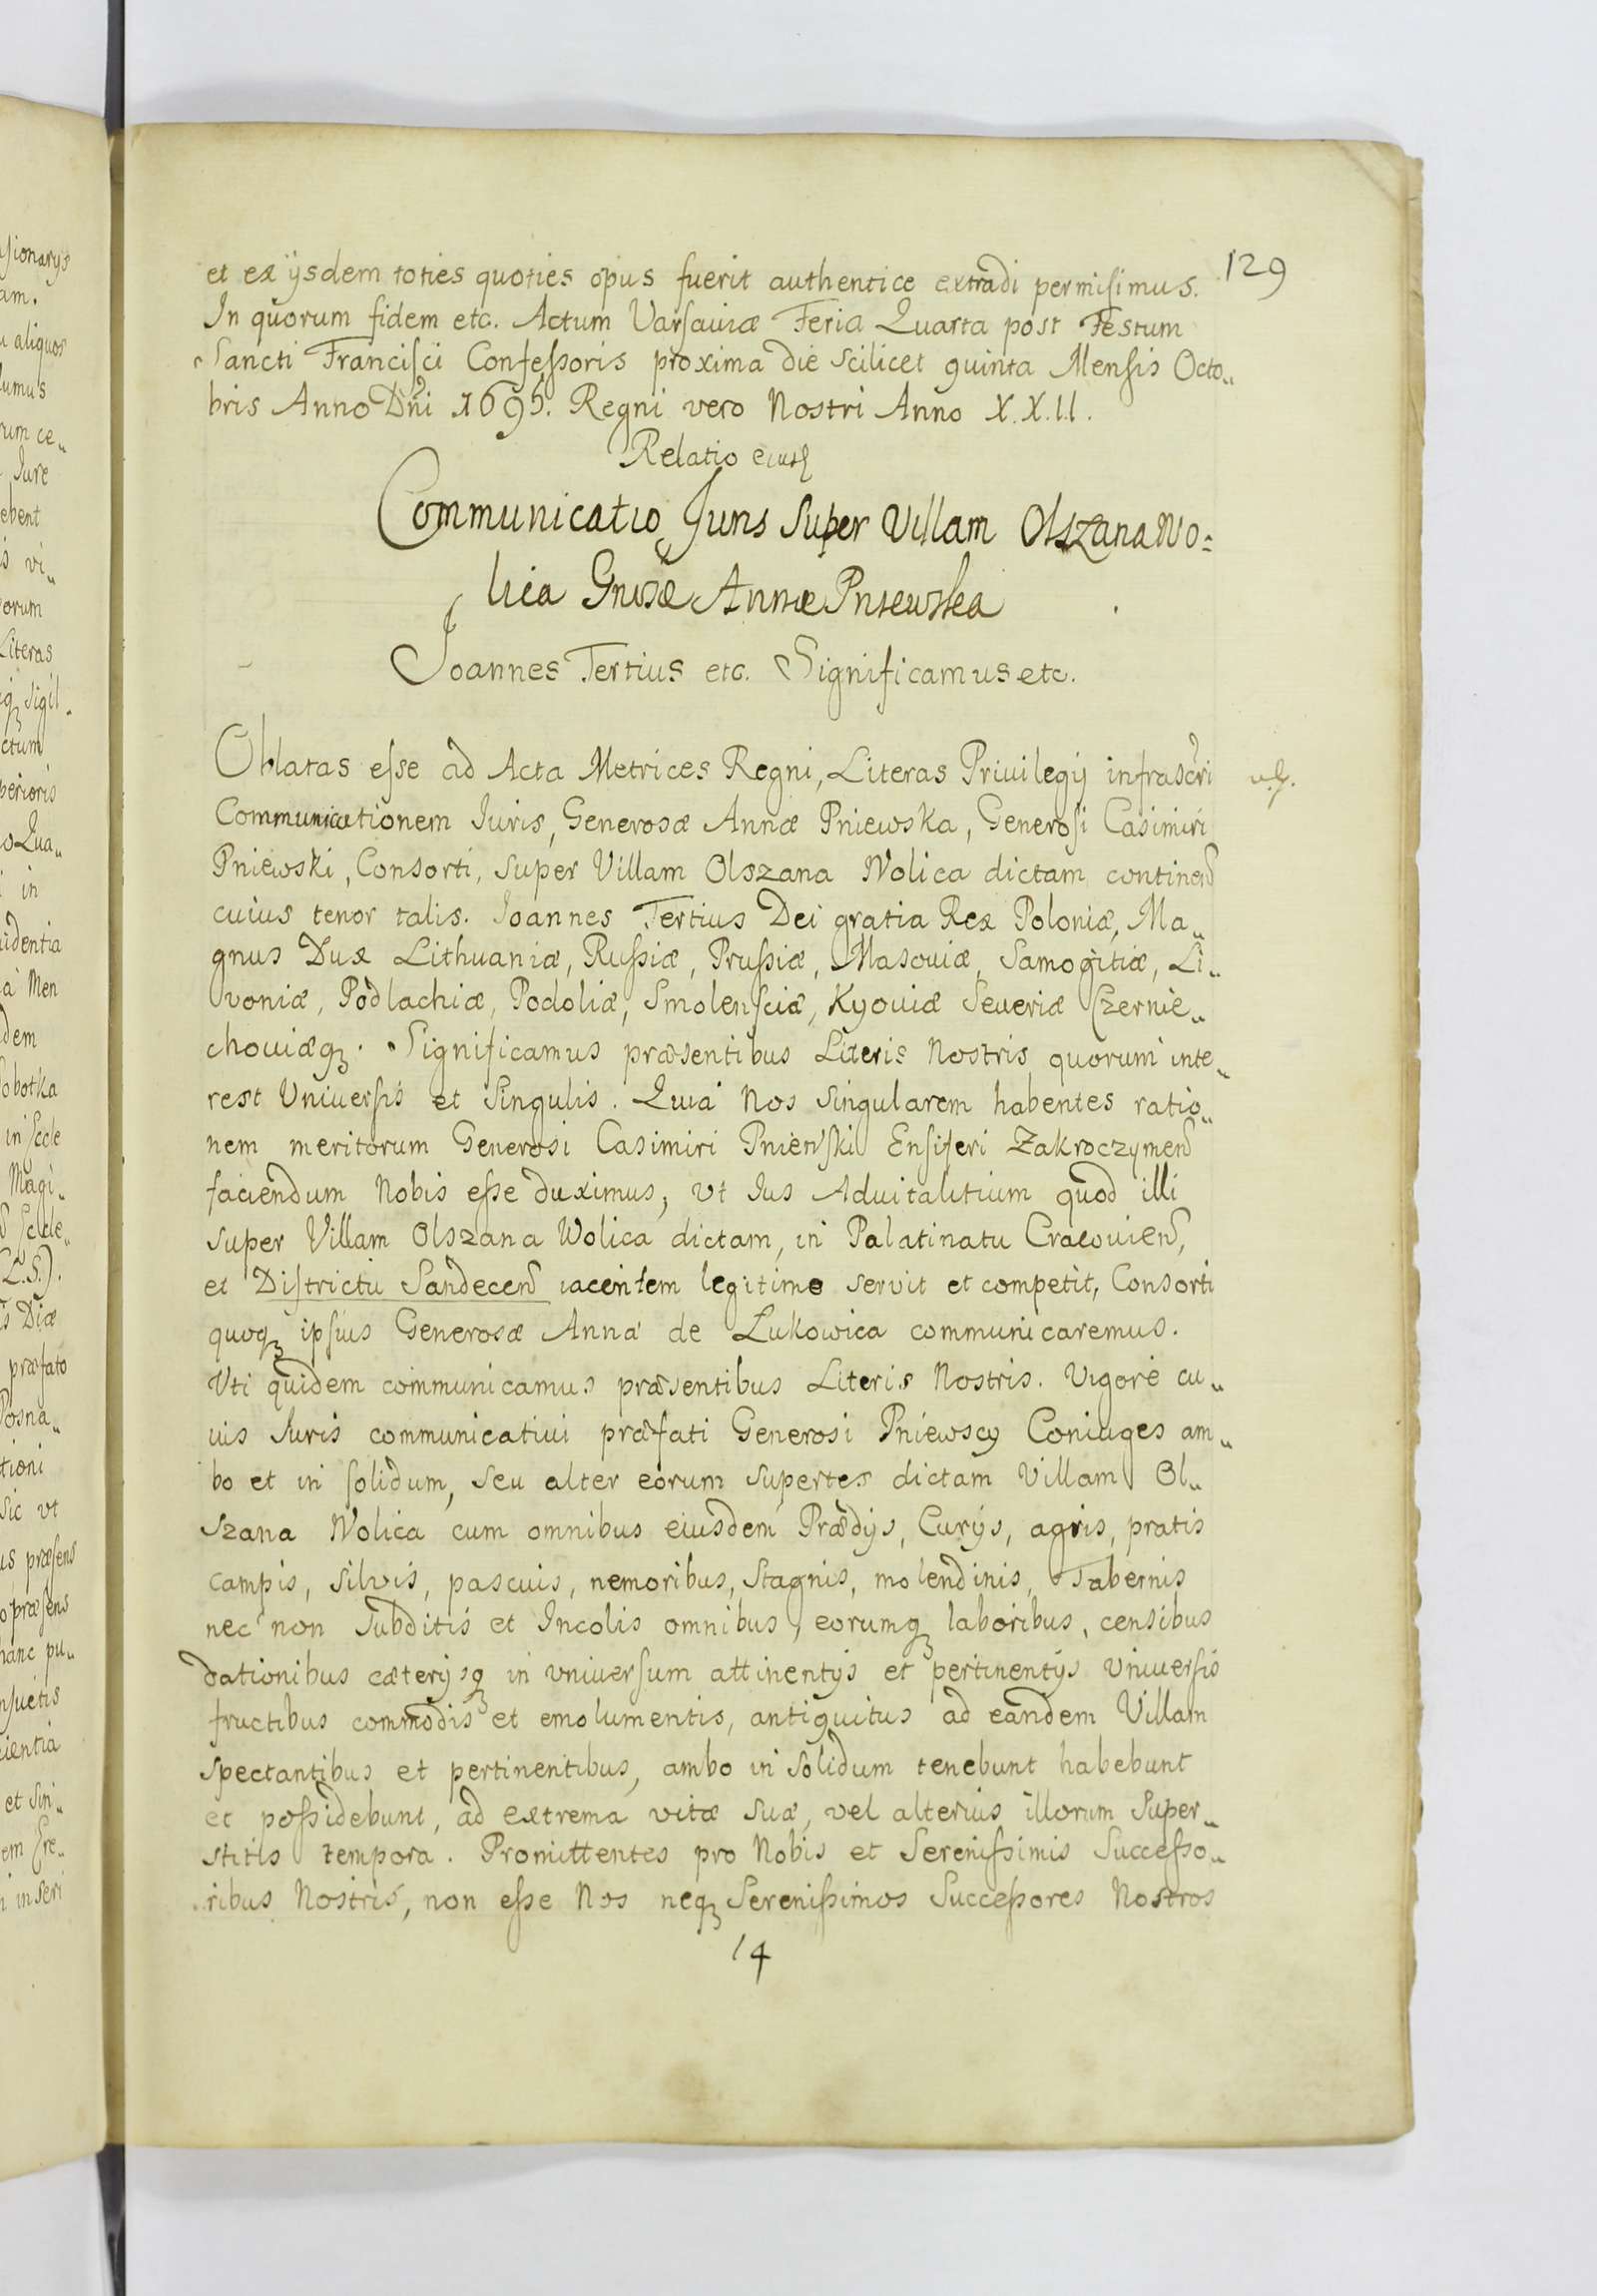 129
et ex ijsdem toties quoties opus fuerit authentice extradi permisimus.
In quorum fidem etc. Actum Varsauiæ Feria Quarta post Festum
Sancti Francisci Confessoris proxima die scilicet quinta Mensis Octo„
bris Anno Dni 1695. Regni vero Nostri Anno X.X.I.I.
Relatio
Communicatio Juris Super Villam Olszana Wo=
lica Gnosæ Annæ Pniewska
Joannes Tertius etc. Significamus etc.
Oblatas esse ad Acta Metrices Regni, Literas Priuilegij infrascri
Communicationem Iuris, Generosæ Annæ Pniewska, Generosi Casimiri
Pniewski, Consorti, super Villam Olszana Wolica dictam continen
cuius tenor talis. Ioannes Tertius Dei gratia Rex Poloniæ, Ma„
gnus Dux Lithuaniæ, Russiæ, Prussiæ, Masouiæ, Samogitiæ, Li„
voniæ, Podlachiæ, Podoliæ, Smolensciæ, Kyouiæ Seueriæ Czernie„
chouiæq. Significamus præsentibus Literis Nostris quorum inte„
rest Uniuersis et Singulis. Quia Nos singularem habentes ratio„
nem meritorum Generosi Casimiri Pniewski Ensiferi Zakroczymen
faciendum Nobis esse duximus, vt Ius Aduitalitium quod illi
super Villam Olszana Wolica dictam, in Palatinatu Cracouien,
et Districtu Sandecen iacentem legitime servit et competit, Consorti
quoq ipsius Generosæ Anna de Lukowica communicaremus.
Vti quidem communicamus præsentibus Literis Nostris. Vigore cu„
uis Iuris communicatiui præfati Generosi Pniewscy Coniuges am„
bo et in solidum, seu alter eorum supertes dictam Villam Ol„
szana Wolica cum omnibus eiusdem Prædijs, Curijs, agris, pratis
campis, silvis, pascuis, nemoribus, stagnis, molendinis, Tabernis
nec non subditis et Incolis omnibus, eorumq laboribus, censibus
dationibus cæterisq in vniuersum attinentijs et pertinentijs Vniuersis
fructibus commodis et emolumentis, antiquitus ad eandem Villam
spectantibus et pertinentibus, ambo in solidum tenebunt habebunt
et possidebunt, ad extrema vitæ suæ, vel alterius illorum super„
stitis tempora. Promittentes pro Nobis et Serenissimis Successo„
ribus Nostris, non esse Nos neq Serenissimos Successores Nostros
14